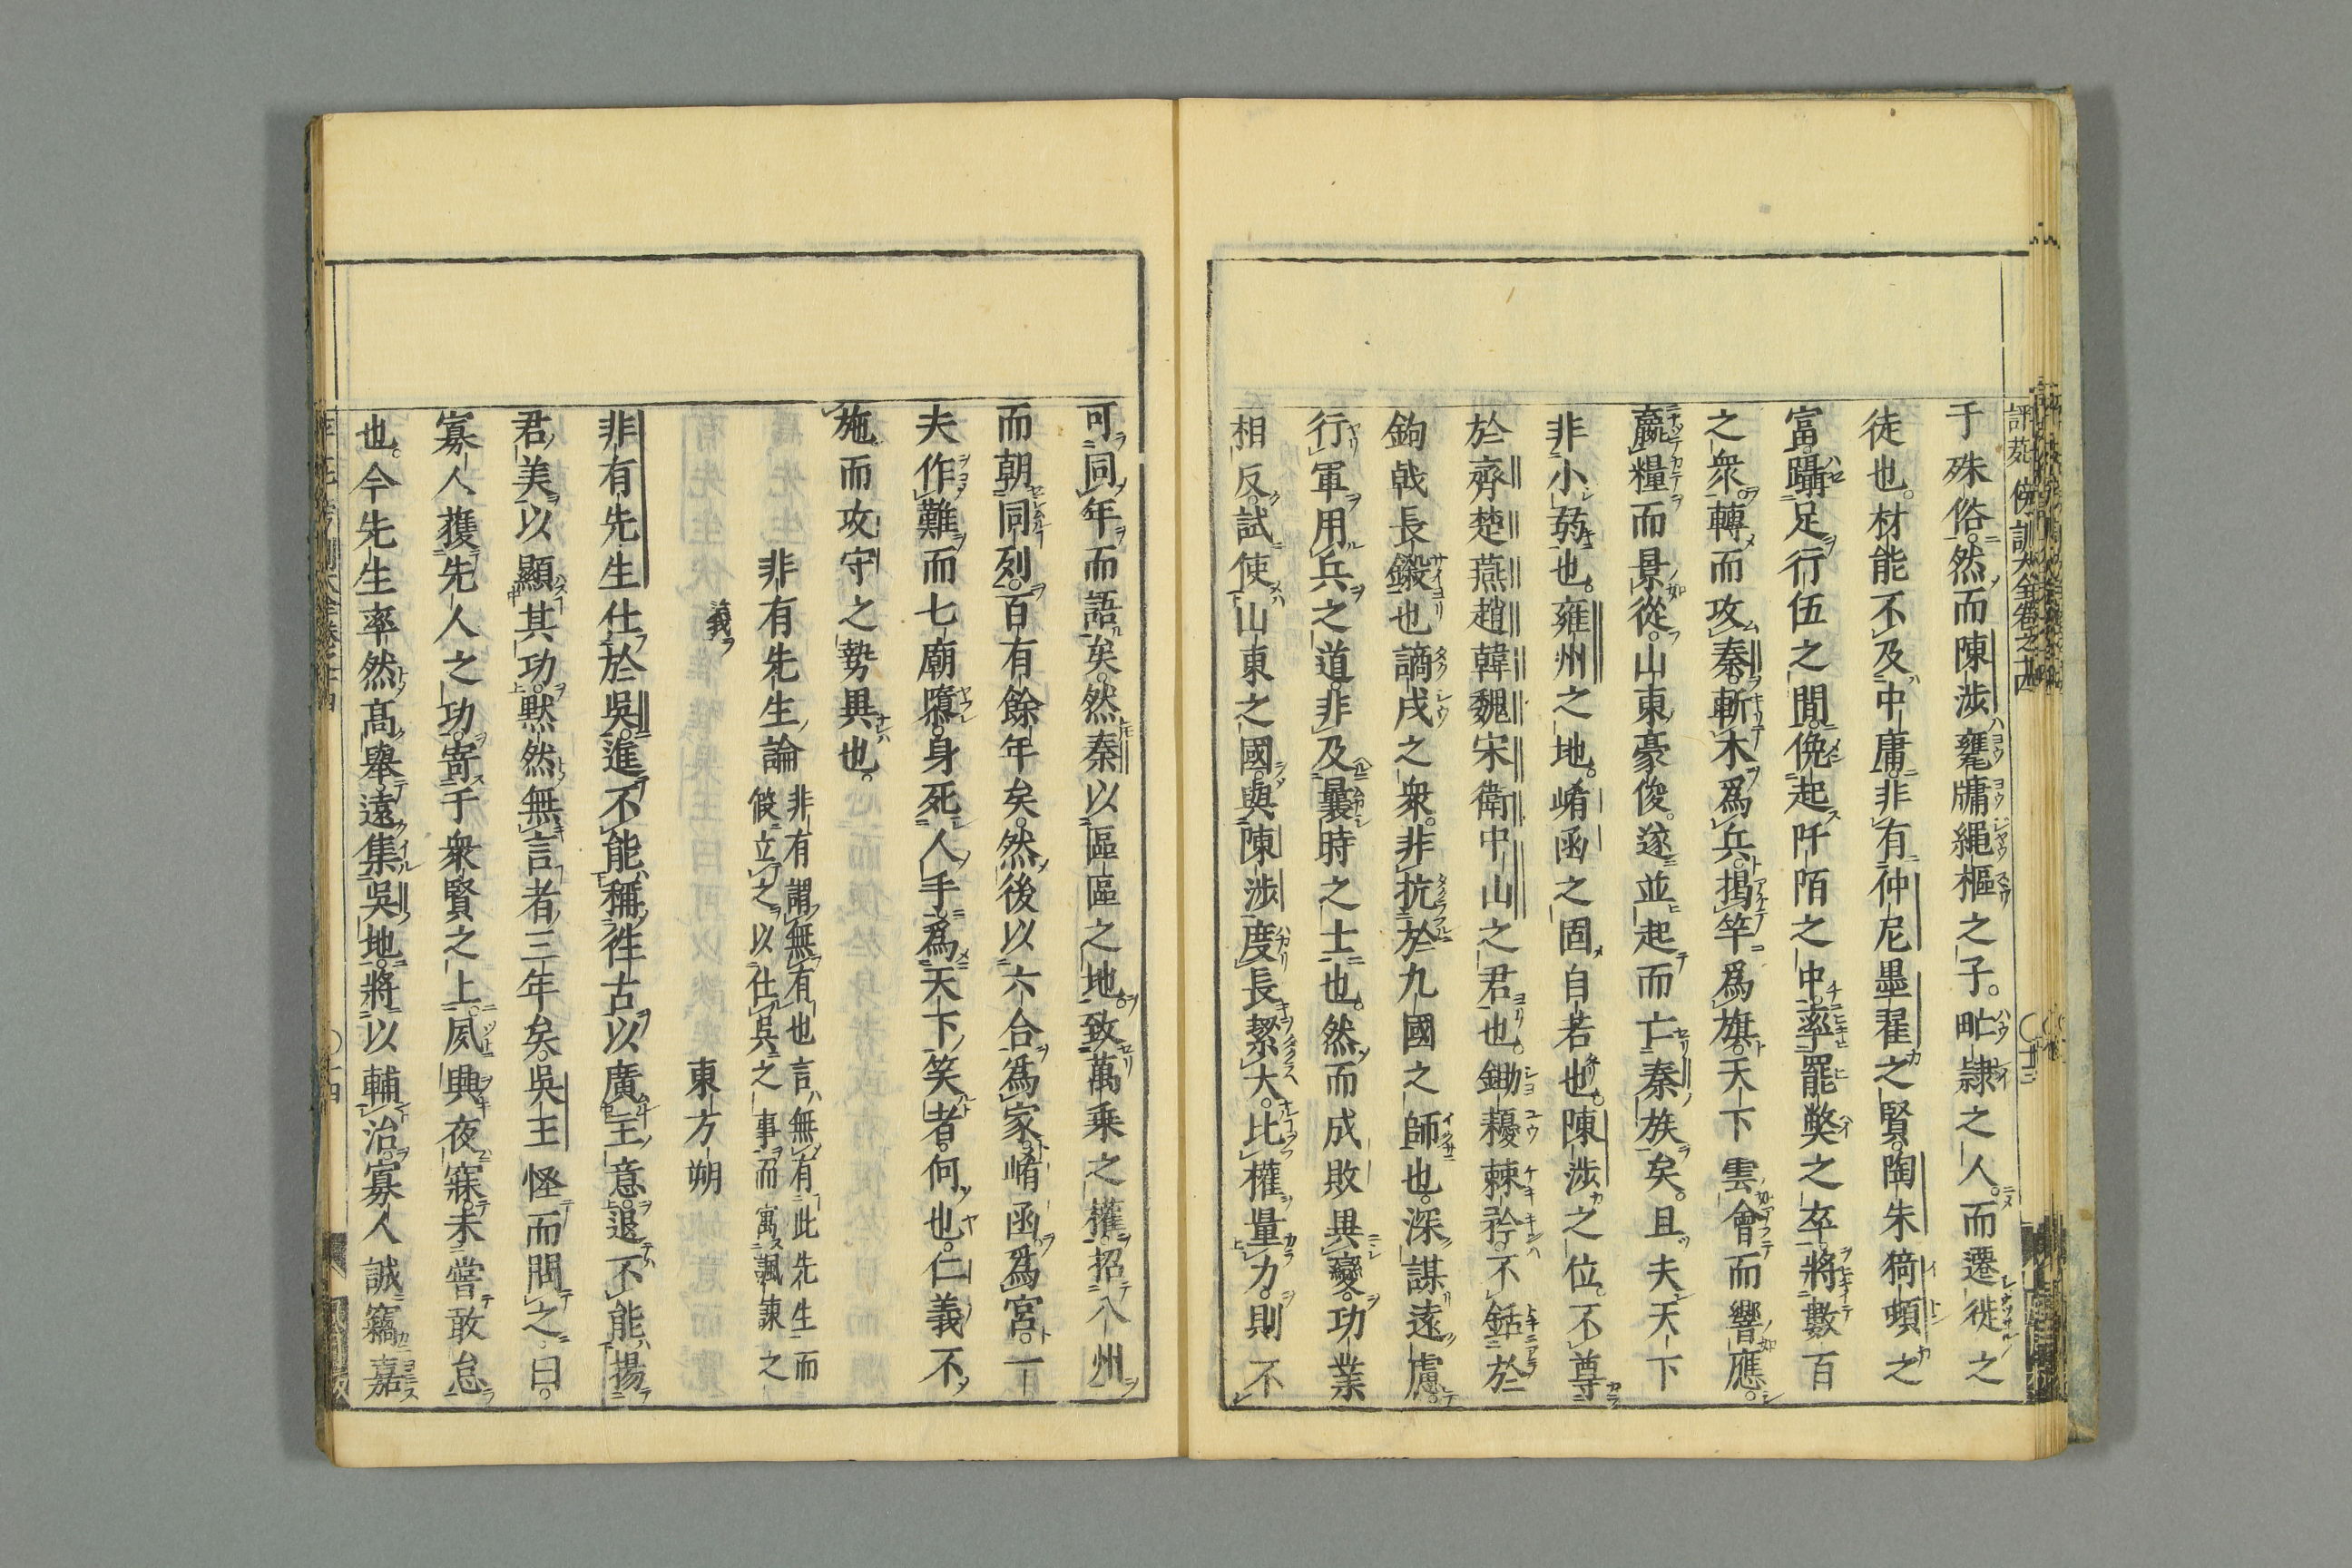 于殊俗。然而陳渉甕牖繩樞之子。甿隷之人。而遷徙之
徒也。材能不及中庸。非有仲尼墨翟之賢。陶朱猗頓之
富。躡足行伍之間。俛起阡陌之中。率罷弊之卒。將數百
之衆。轉而攻秦。斬木爲兵。掲竿爲旗。天下雲會而響應。
贏糧而景從。山東豪俊。遂並起而亡秦族矣。且夫天下
非小弱也。雍州之地。崤函之固。自若也。陳渉之位。不尊
於齊楚燕趙韓魏宋衛中山之君也。鋤耰棘矜。不銛於
鉤戟長鎩也。謫戍之衆。非抗於九國之師也。深謀遠慮。
行軍用兵之道。非及曩時之士也。然而成敗異變。功業
相反。試使山東之國。與陳渉度長絜大。比權量力。則不
可同年而語矣。然秦以區區之地。致萬乘之權。招八州
而朝同列。百有餘年矣。然後以六合爲家。崤函爲宮。一
夫作難。而七廟隳。身死人手。爲天下笑者。何也。仁義不
施。而攻守之勢異也。
非有先生論
非有謂無有也言無有此先生而
假立之以仕吳之事而寓諷諫之
義
東方朔
非有先生仕於吳。進不能稱往古以廣主意。退不能揚
君美以顯其功。黙然無言者。三年矣。吳王怪而問之。曰。
寡人獲先人之功。寄于衆賢之上。夙興夜寐。未嘗敢怠
也。今先生率然高舉。遠集吳地。將以輔治。寡人誠竊嘉